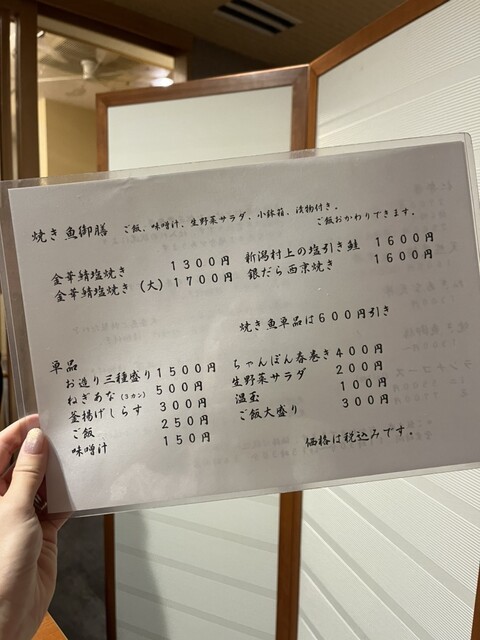 焼き魚御膳 ご飯、味噌汁、生野菜サラダ、小鉢箱、漬物付き。
ご飯おかわりできます。
金華鯖塩焼き 1300円
金華鯖塩焼き (大) 1700円
新潟村上の塩引き鮭 1600円
銀だら西京焼き 1600円
焼き魚単品は600円引き
単品
お造り三種盛り 1500円
ねぎあな(3カン) 500円
釜揚げしらす 300円
ご飯 250円
味噌汁 150円
ちゃんぽん春巻き 400円
生野菜サラダ 200円
温玉 100円
ご飯大盛り 300円
価格は税込みです。